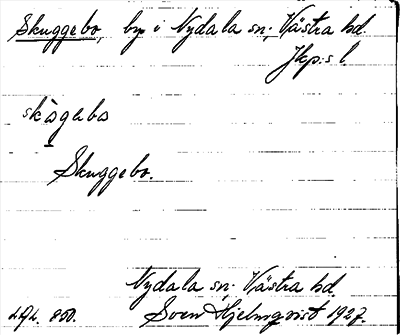 Skuggebo, by i Nydala sn; Västra hd.
Jkp:s l
skàgebo
Skuggebo.
Nydala sn; Västra hd.
Sven Hjelmqvist 1927.